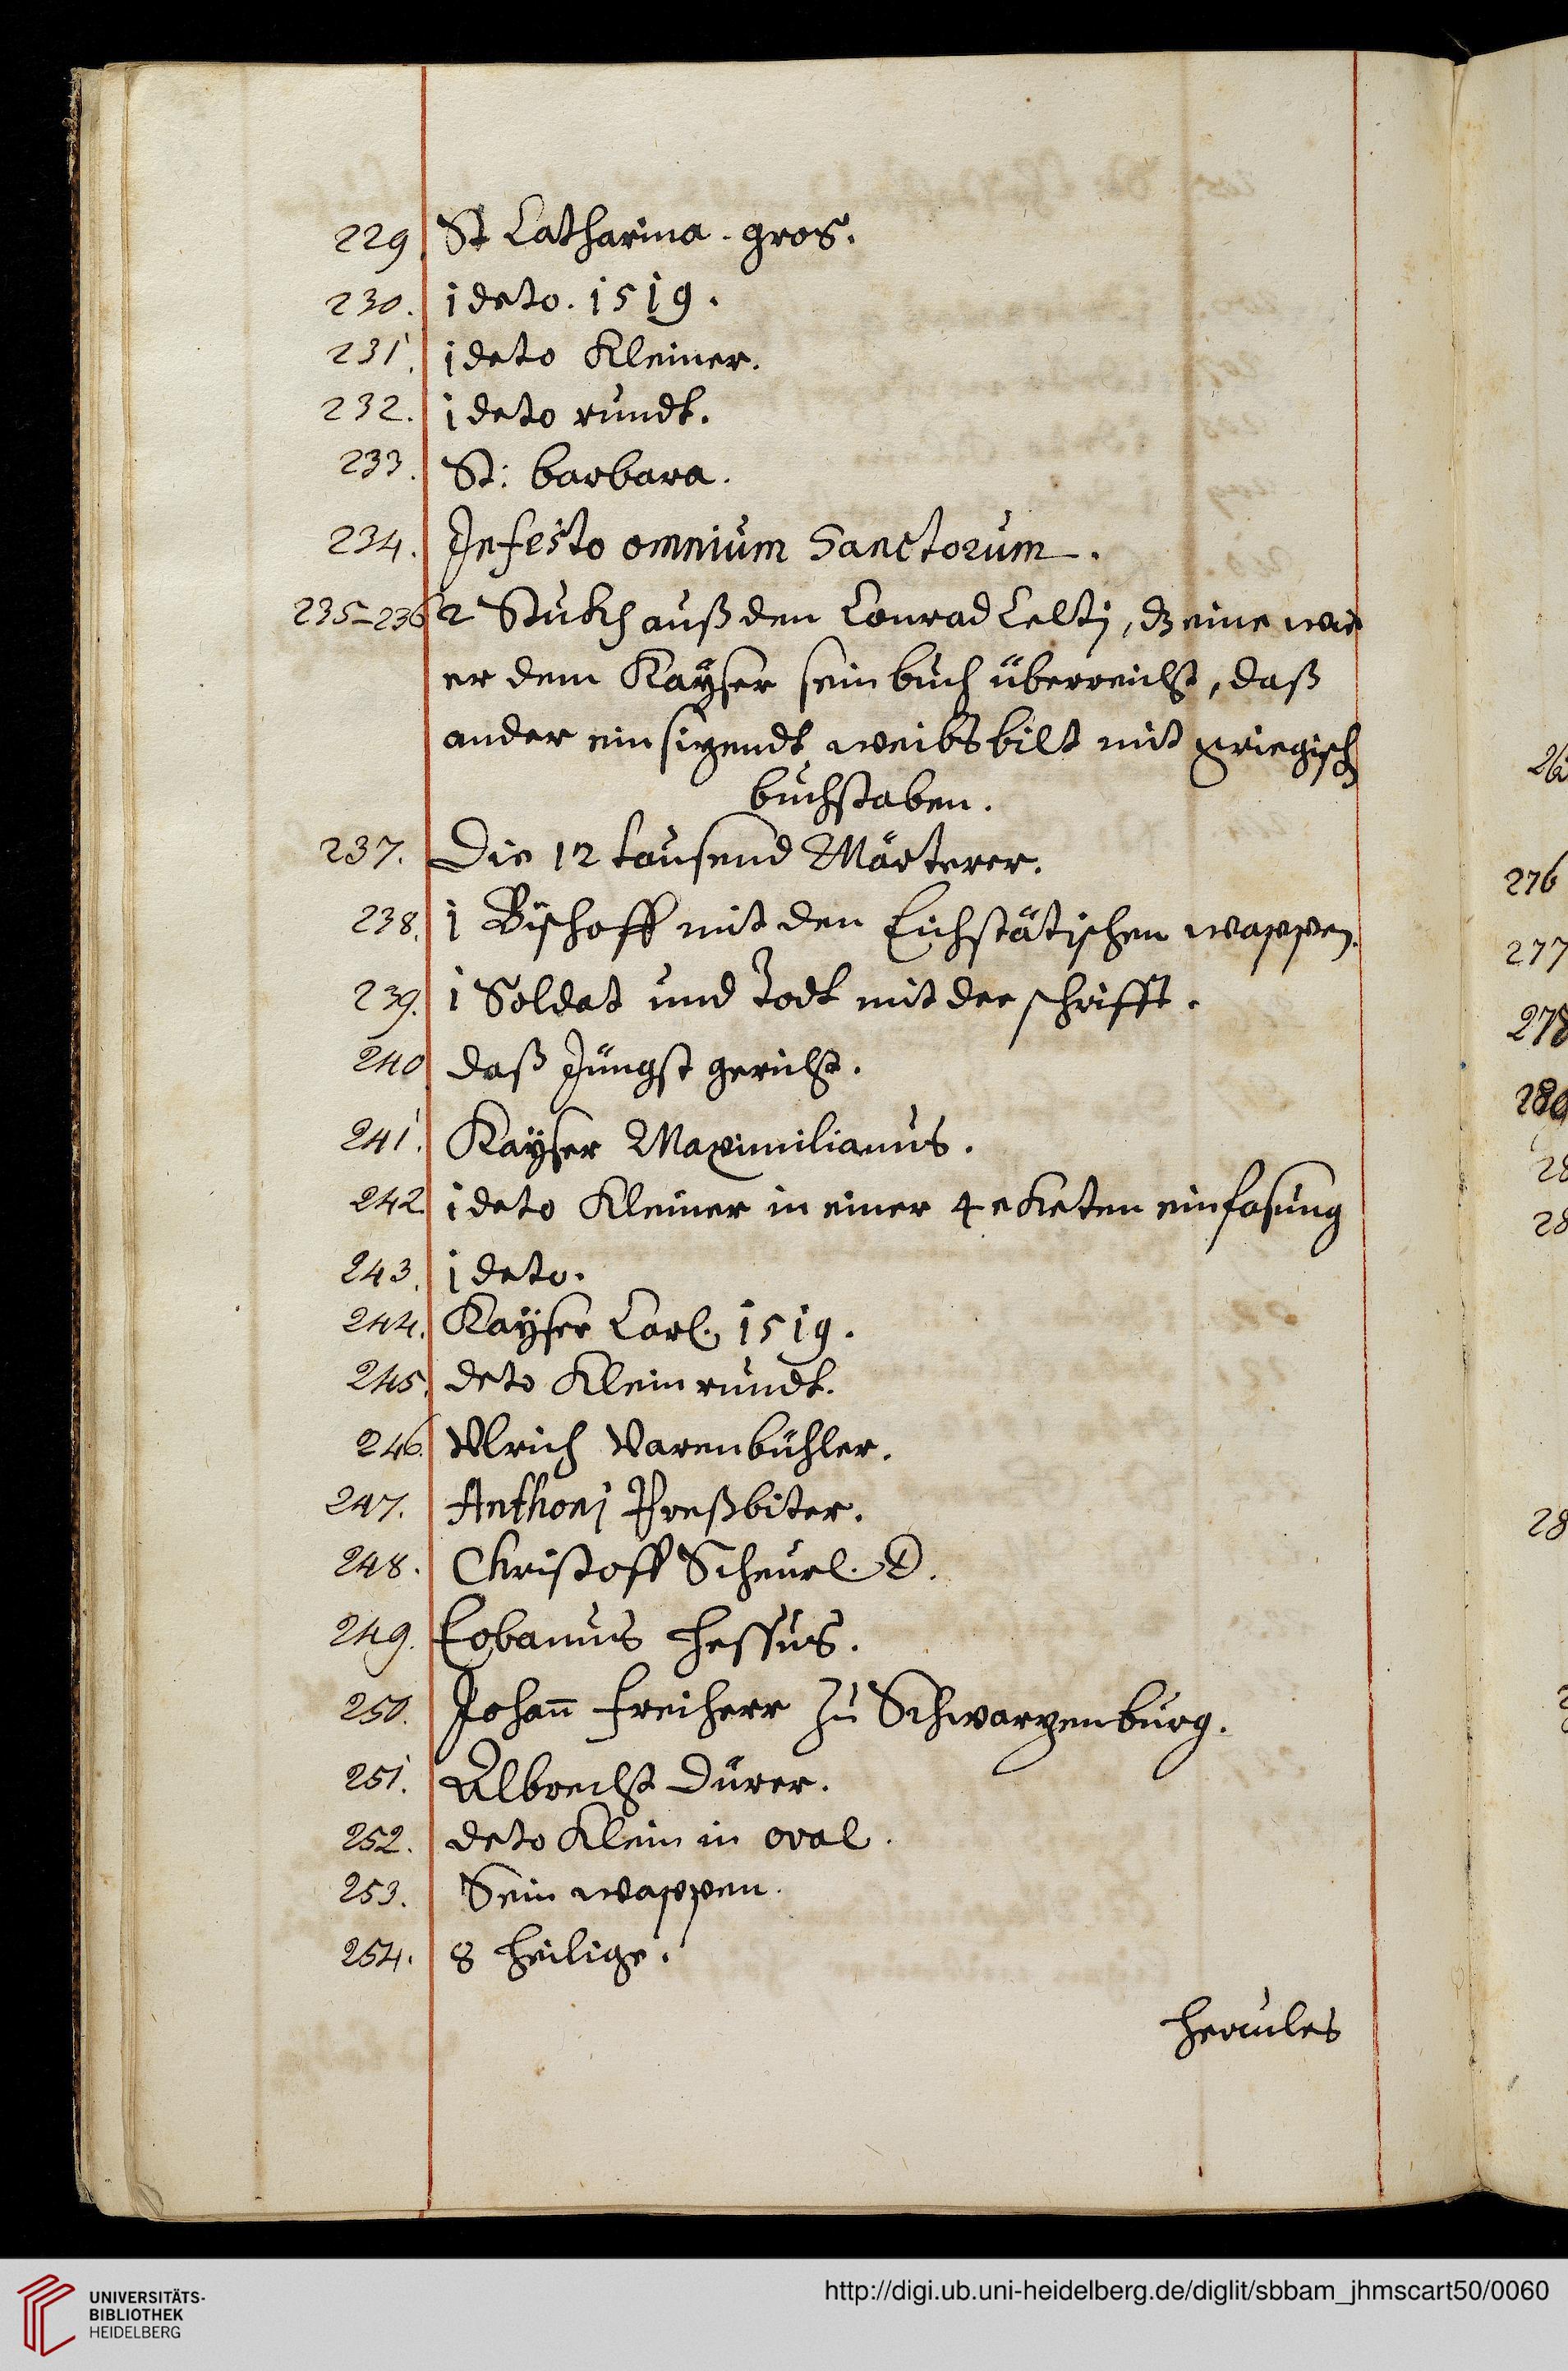 229. St Catharina. gros.
230. 1 deto. 1519.
231. 1 deto Kleiner.
232. 1 deto rundt.
233. St: barbara.
234. Infesto omnium Sanctorum.
235–236 2 Stukh auß den Conrad Celtj, dz eine wie
er dem Kaÿser sein buch überreicht, daß
ander ein sizendt weibsbilt mit griegisch
buchstaben.
237. Die 12 tausend Märterer.
238. 1 Bischoff mit den Eichstätischen wappen.
239. 1 Soldat und Todt mit der schrifft.
240 daß Jüngst gericht.
241. Kaÿser Maximilianus.
242. 1 deto Kleiner in einer 4 eketen einfasung
243. 1 deto.
244. Kaÿser Carl. 1519.
245. deto Klein rundt.
246. Vlrich Varenbühler.
247. Anthonj Preßbiter.
248. Christoff Scheurl. D.
249. Eobanus Hessus.
250. Johan̄ Freiherr zu Schwarzenburg.
251. Albrecht Dürer.
252. deto Klein in oval.
253. Sein wappen.
254. 8 Heilige.
Hercules
26
276
277
278
280
28
28
28
UNIVERSITÄTS-
BIBLIOTHEK
HEIDELBERG
http://digi.ub.uni-heidelberg.de/diglit/sbbam_jhmscart50/0060